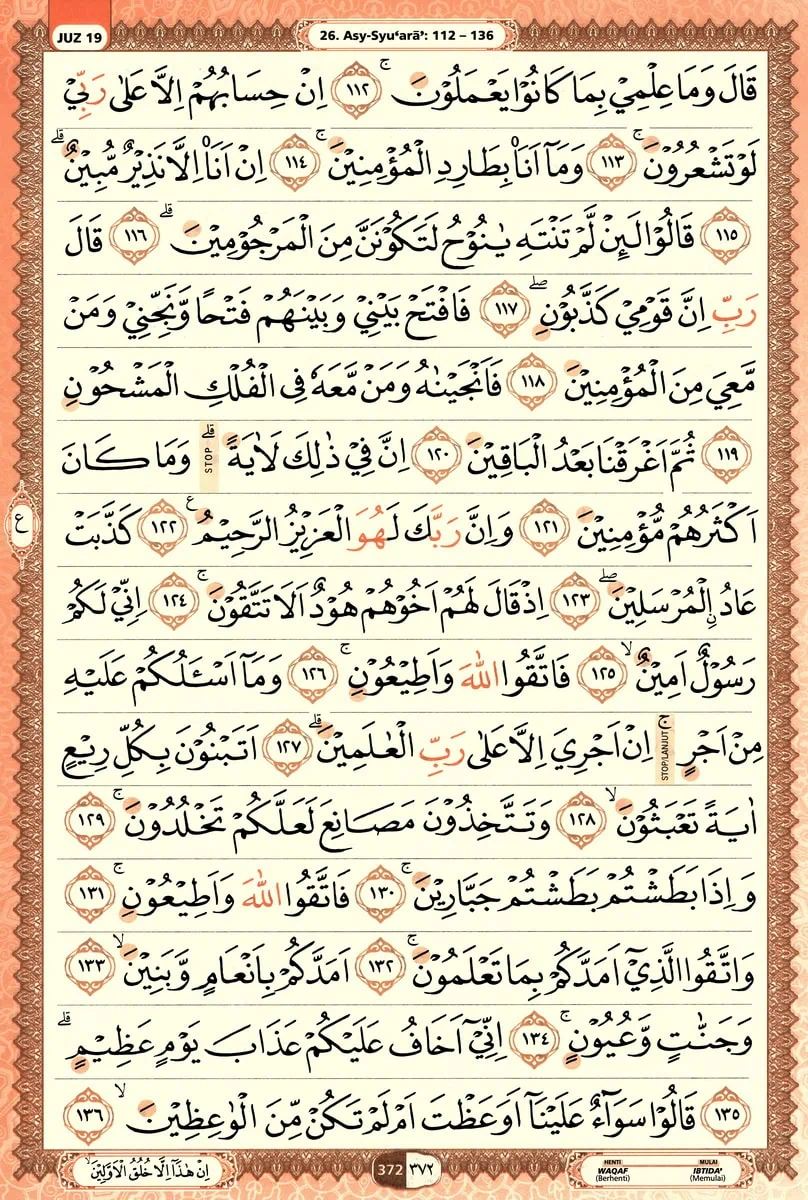 JUZ 19
26. Asy-Syu‘arā': 112 – 136
قَالَ وَمَا عِلْمِيْ بِمَا كَانُوْا يَعْمَلُوْنَۚ ﴿١١٢﴾ اِنْ حِسَابُهُمْ اِلَّا عَلٰى رَبِّيْ
لَوْ تَشْعُرُوْنَۚ ﴿١١٣﴾ وَمَآ اَنَا۠ بِطَارِدِ الْمُؤْمِنِيْنَۚ ﴿١١٤﴾ اِنْ اَنَا۠ اِلَّا نَذِيْرٌ مُّبِيْنٌۗ
﴿١١٥﴾ قَالُوْا لَىِٕنْ لَّمْ تَنْتَهِ يٰنُوْحُ لَتَكُوْنَنَّ مِنَ الْمَرْجُوْمِيْنَۗ ﴿١١٦﴾ قَالَ
رَبِّ اِنَّ قَوْمِيْ كَذَّبُوْنِۖ ﴿١١٧﴾ فَافْتَحْ بَيْنِيْ وَبَيْنَهُمْ فَتْحًا وَّنَجِّنِيْ وَمَنْ
مَّعِيَ مِنَ الْمُؤْمِنِيْنَ ﴿١١٨﴾ فَاَنْجَيْنٰهُ وَمَنْ مَّعَهٗ فِى الْفُلْكِ الْمَشْحُوْنِ
﴿١١٩﴾ ثُمَّ اَغْرَقْنَا بَعْدُ الْبَاقِيْنَ ﴿١٢٠﴾ اِنَّ فِيْ ذٰلِكَ لَاٰيَةًۗ STOP وَمَا كَانَ
اَكْثَرُهُمْ مُّؤْمِنِيْنَ ﴿١٢١﴾ وَاِنَّ رَبَّكَ لَهُوَ الْعَزِيْزُ الرَّحِيْمُ ع ﴿١٢٢﴾ كَذَّبَتْ
ع
عَادُ ِۨالْمُرْسَلِيْنَۖ ﴿١٢٣﴾ اِذْ قَالَ لَهُمْ اَخُوْهُمْ هُوْدٌ اَلَا تَتَّقُوْنَۚ ﴿١٢٤﴾ اِنِّيْ لَكُمْ
رَسُوْلٌ اَمِيْنٌۙ ﴿١٢٥﴾ فَاتَّقُوا اللّٰهَ وَاَطِيْعُوْنِۚ ﴿١٢٦﴾ وَمَآ اَسْـَٔلُكُمْ عَلَيْهِ
مِنْ اَجْرٍۚ STOP/LANJUT اِنْ اَجْرِيَ اِلَّا عَلٰى رَبِّ الْعٰلَمِيْنَۗ ﴿١٢٧﴾ اَتَبْنُوْنَ بِكُلِّ رِيْعٍ
اٰيَةً تَعْبَثُوْنَۙ ﴿١٢٨﴾ وَتَتَّخِذُوْنَ مَصَانِعَ لَعَلَّكُمْ تَخْلُدُوْنَۚ ﴿١٢٩﴾
وَاِذَا بَطَشْتُمْ بَطَشْتُمْ جَبَّارِيْنَۚ ﴿١٣٠﴾ فَاتَّقُوا اللّٰهَ وَاَطِيْعُوْنِۚ ﴿١٣١﴾
وَاتَّقُوا الَّذِيْٓ اَمَدَّكُمْ بِمَا تَعْلَمُوْنَۚ ﴿١٣٢﴾ اَمَدَّكُمْ بِاَنْعَامٍ وَّبَنِيْنَۙ ﴿١٣٣﴾
وَجَنّٰتٍ وَّعُيُوْنٍۚ ﴿١٣٤﴾ اِنِّيْٓ اَخَافُ عَلَيْكُمْ عَذَابَ يَوْمٍ عَظِيْمٍۗ
﴿١٣٥﴾ قَالُوْا سَوَاۤءٌ عَلَيْنَآ اَوَعَظْتَ اَمْ لَمْ تَكُنْ مِّنَ الْوٰعِظِيْنَۙ ﴿١٣٦﴾
اِنْ هٰذَآ اِلَّا خُلُقُ الْاَوَّلِيْنَۙ
372 ٣٧٢
HENTI MULAI
WAQAF IBTIDA'
(Berhenti) (Memulai)